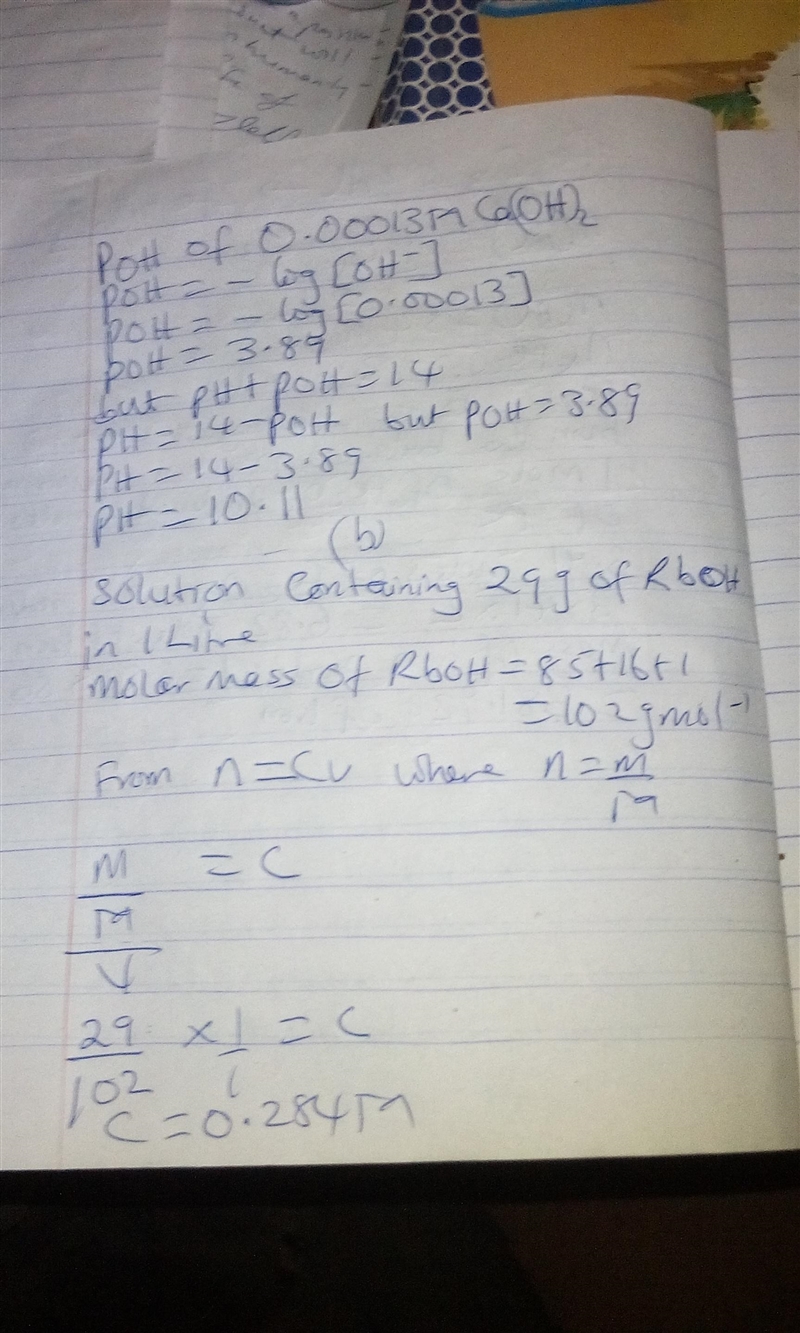 POH of 0.00013M Ca(OH)₂
POH = - log [OH⁻]
POH = - log [0.00013]
POH = 3.89
but PH + POH = 14
PH = 14 - POH but POH = 3.89
PH = 14 - 3.89
PH = 10.11
(b)
Solution Containing 29g of RbOH
in 1 Litre
Molar Mass of RbOH = 85+16+1
= 102gmol⁻¹
From n = CV where n = m/M
m/M/V = C
29/102 × 1/1 = C
C = 0.284M